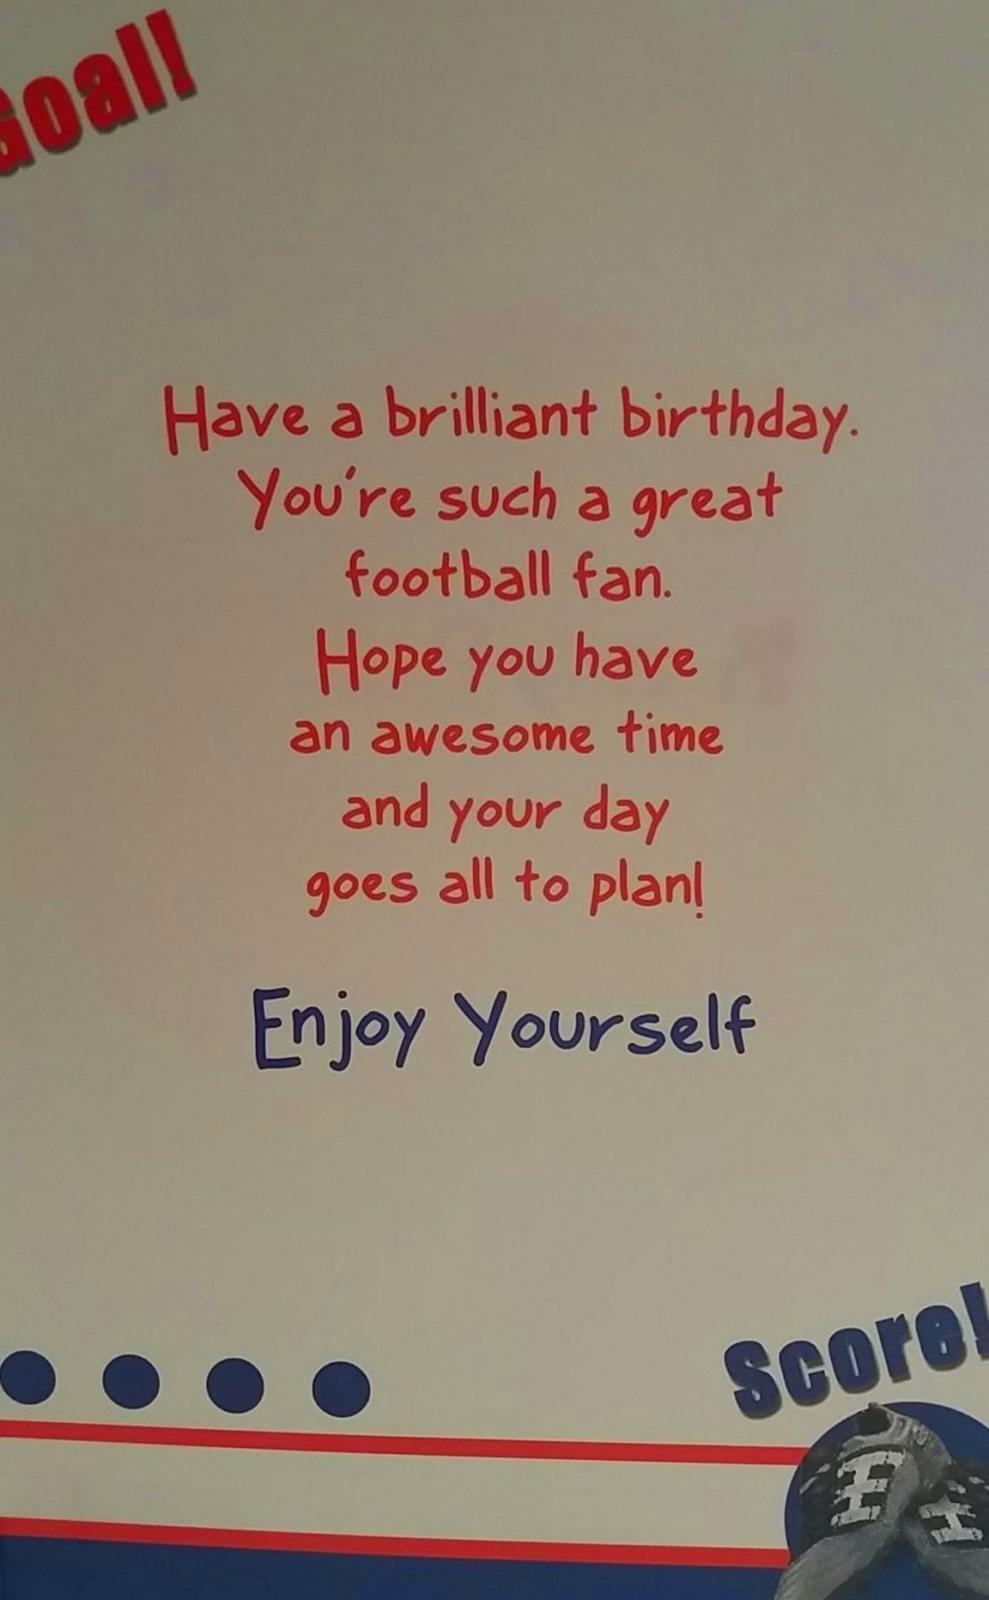 Goal!
Have a brilliant birthday.
You're such a great
football fan.
Hope you have
an awesome time
and your day
goes all to plan!
Enjoy Yourself
Score!